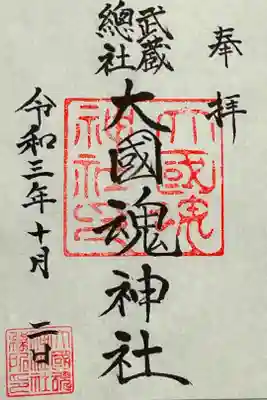 奉拝
武蔵
總社
大國魂神社
令和三年十月二日
大國魂
神社印